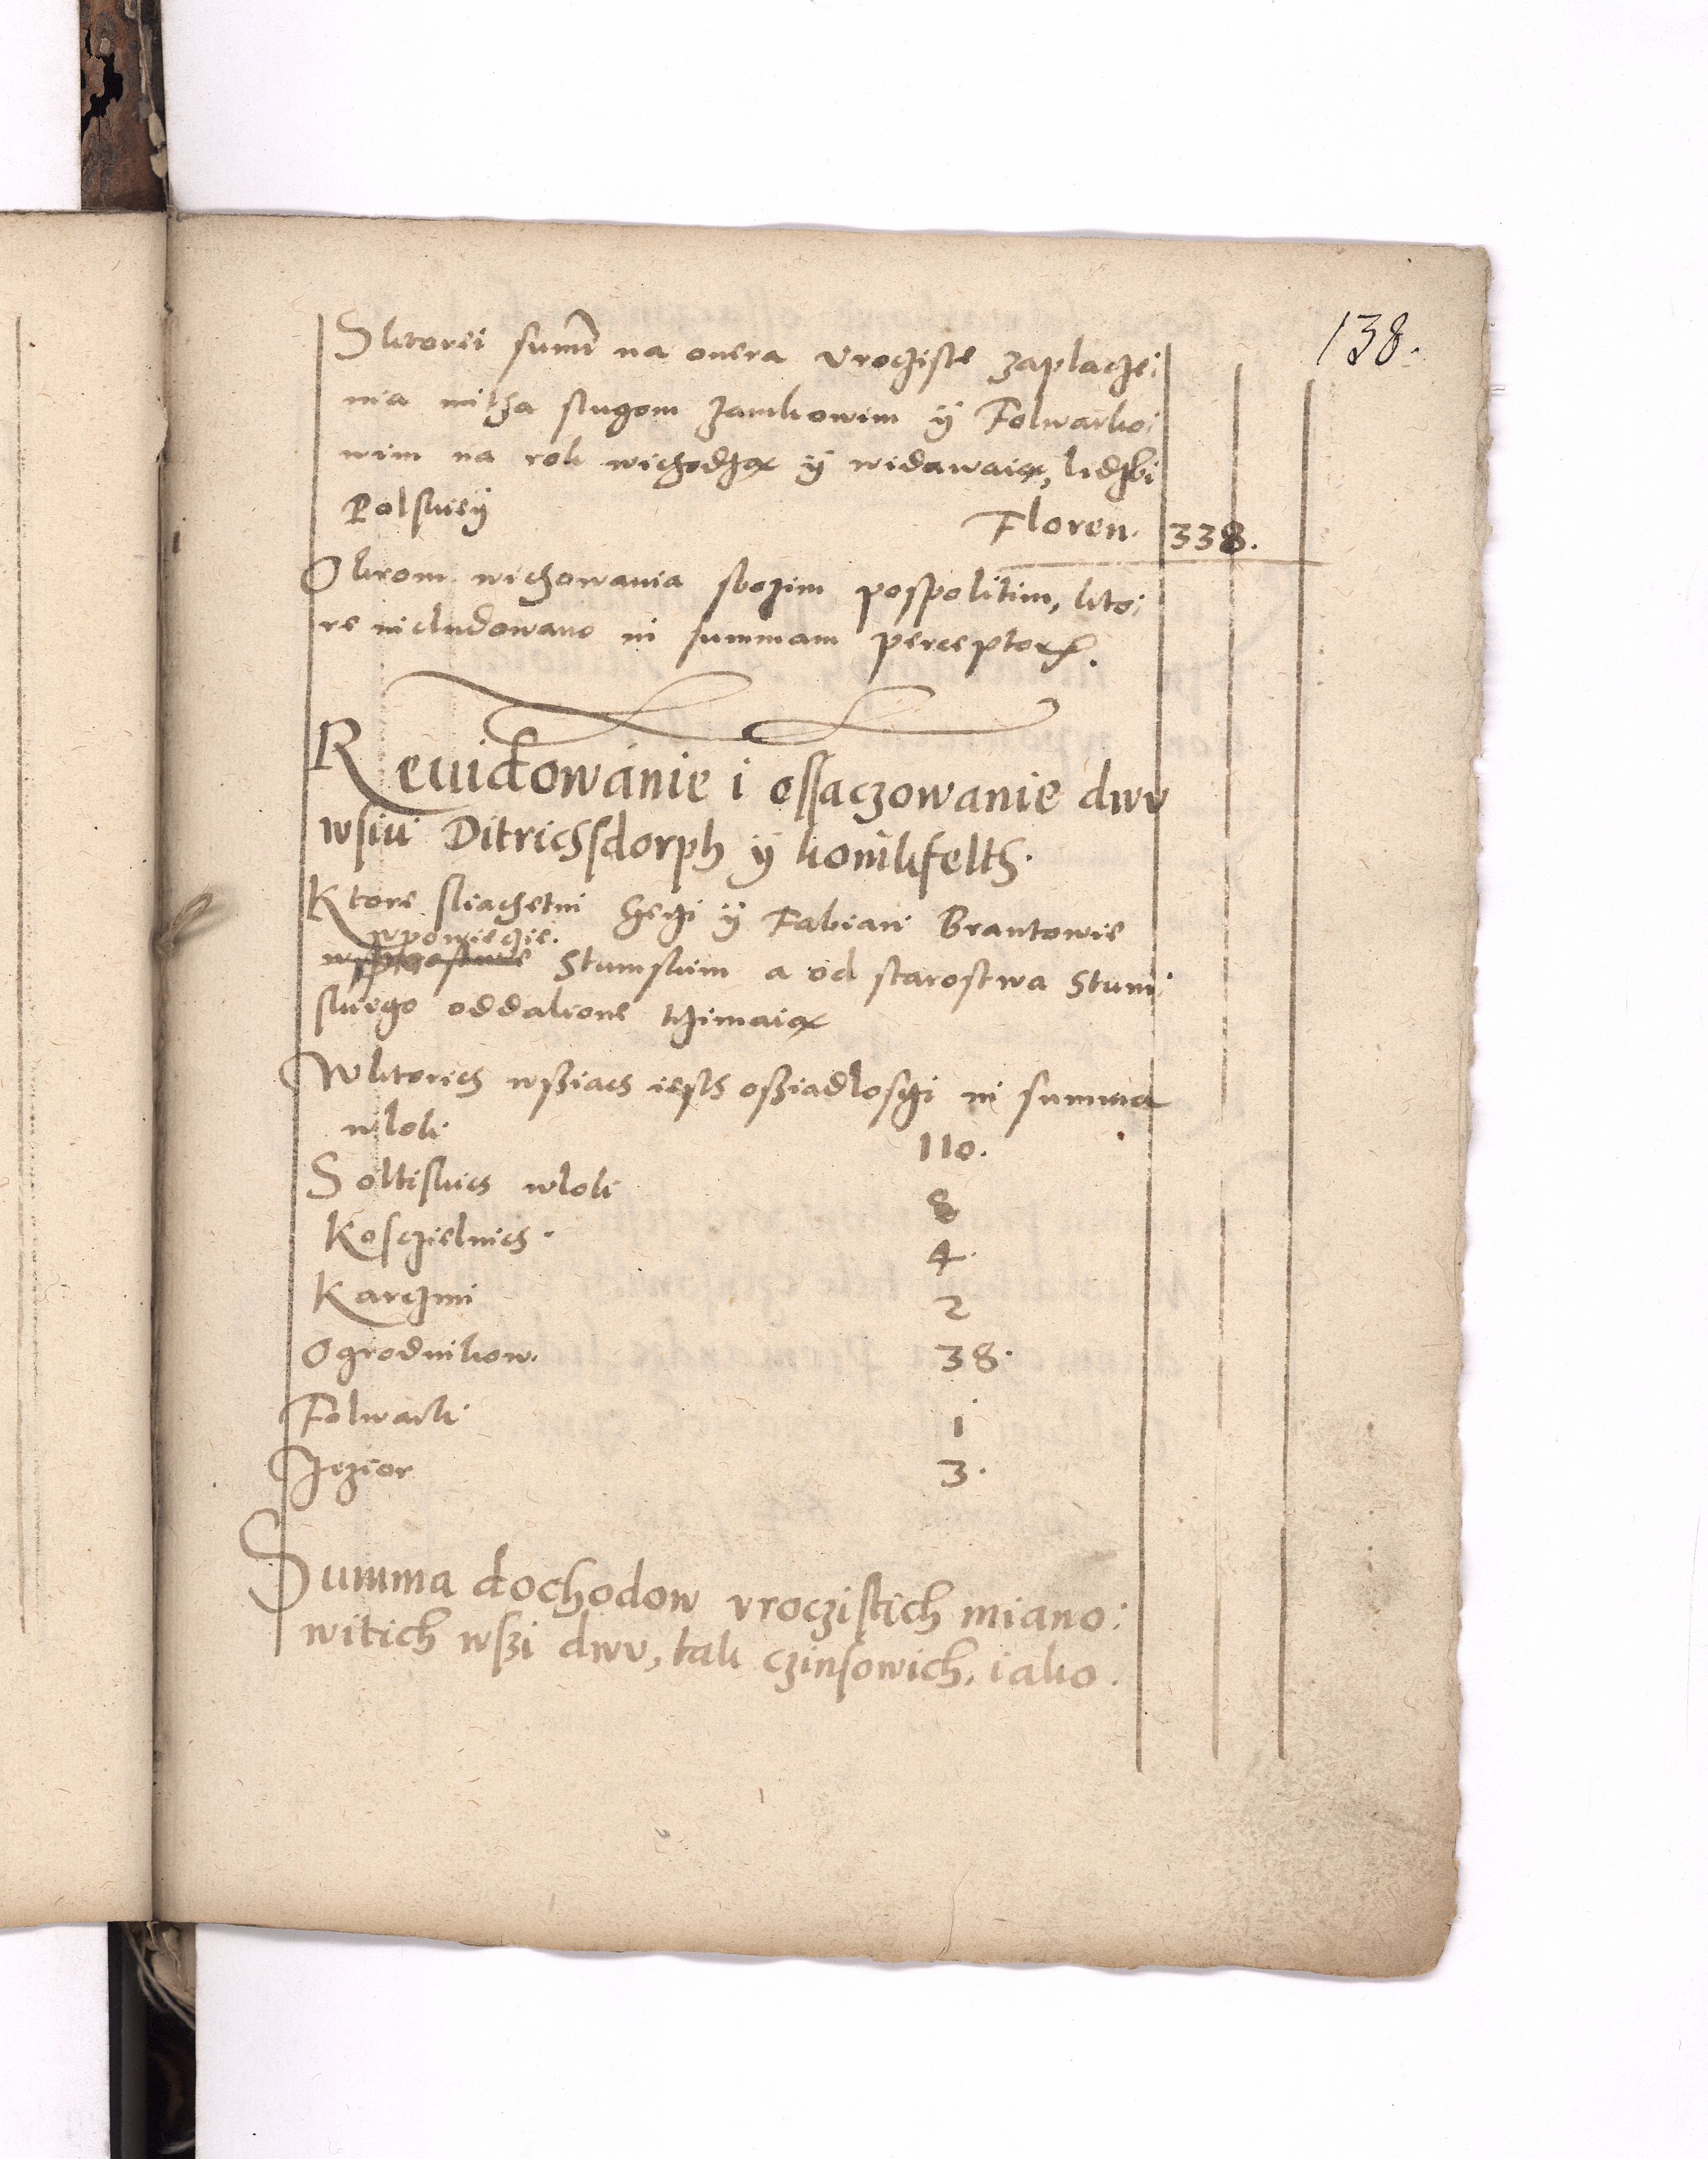 138.
Sktorei sum̃ na onera vrocziste zaplacze:
nia mitha slugom zamkowim ÿ Folwarko:
wim na rok wichodzą ÿ widawaią, lidzbi
Polskieÿ Floren. 338.
Okrom wichowania sbozim pospolitim, kto:
re includowano in summam perceptorum.
Reuidowanie i ossaczowanie dwu
wsiu Ditrichsdorph ÿ konikfelth.
Ktore sliachetni Geczi ÿ Fabian Brantowie
wpowieczie.
Stumskim a od starostwa Stum:
skiego oddalione trzimaią
Wktorich wsziach iesth osziadlosczi in summa
wlok 110.
Soltiskich wlok 8
Kosczielnich. 4.
Karczmi 2
Ogrodnikow. 38.
Folwark 1
Jezior 3.
Summa dochodow vroczistich miano:
witich wszi dwu, tak czinsowich, iako.